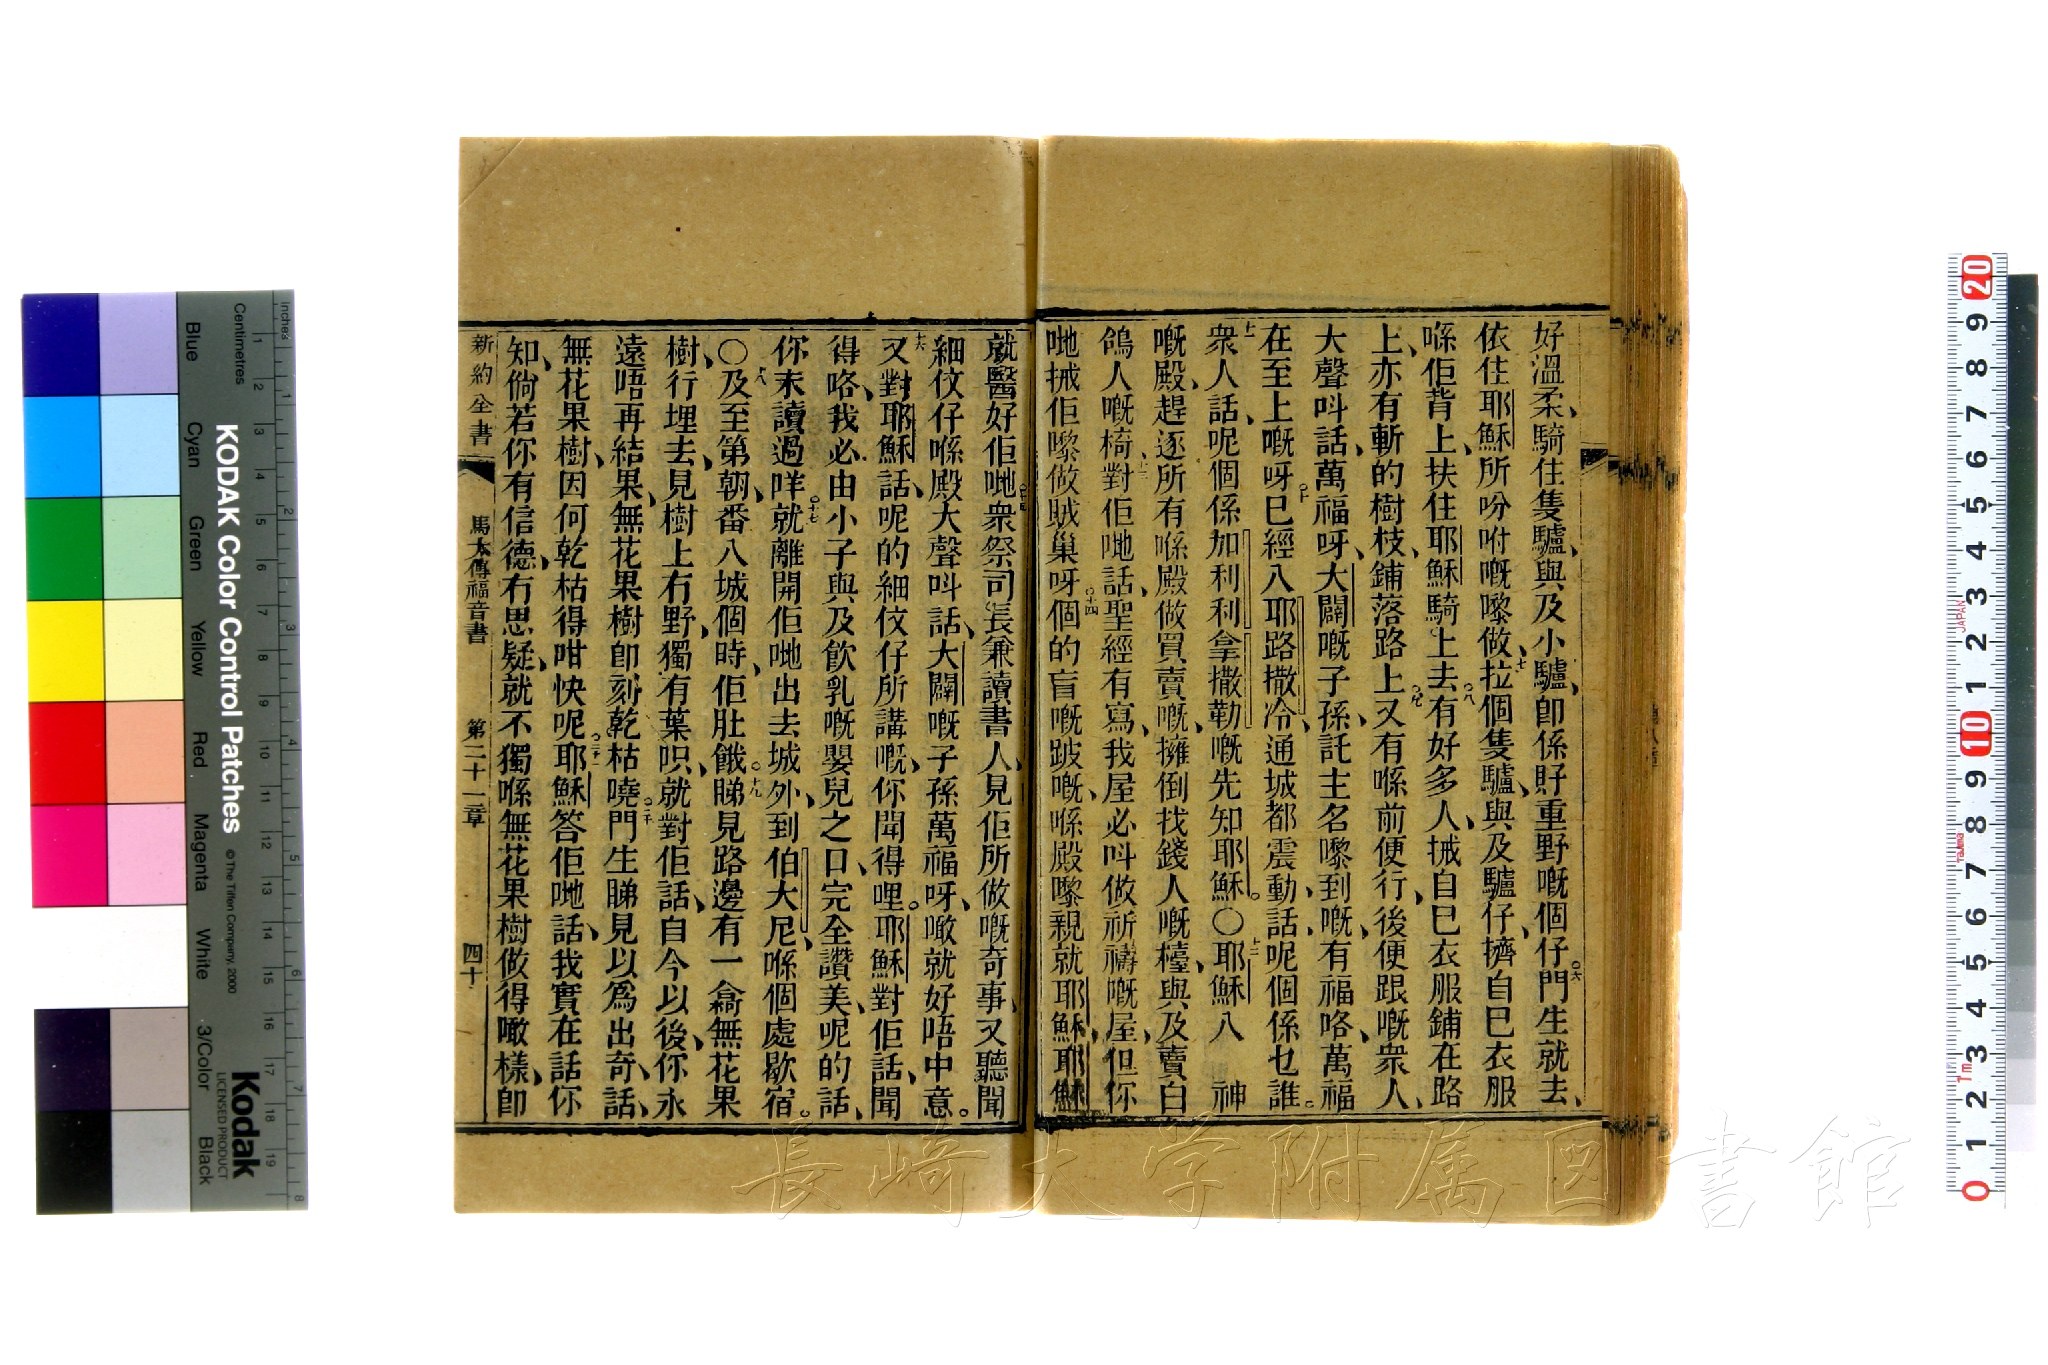 好溫柔、騎住隻驢、與及小驢、卽係馱重野嘅個仔○六門生就去、
依住耶穌所吩咐嘅嚟做、○七拉個隻驢、與及驢仔、擠自己衣服
喺佢背上、扶住耶穌騎上去○八有好多人、搣自己衣服鋪在路
上、亦有斬的樹枝、鋪落路上○九又有喺前便行、後便跟嘅衆人、
大聲呌話、萬福呀、大闢嘅子孫、託主名嚟到嘅、有福咯、萬福
在至上嘅呀○十已經入耶路撒冷、通城都震動、話、呢個係乜誰。
十一衆人話、呢個係加利利拿撒勒嘅先知耶穌。○十二耶穌入　神
嘅殿、趕逐所有喺殿做買賣嘅、擁倒找錢人嘅檯、與及賣白
鴿人嘅椅○十三對佢哋話、聖經有寫、我屋必呌做祈禱嘅屋、但你
哋搣佢嚟做賊巢呀○十四個的盲嘅跛嘅、喺殿嚟親就耶穌、耶穌
就醫好佢哋○十五衆祭司長兼讀書人、見佢所做嘅奇事、又聽聞
細伩仔喺殿大聲呌話、大闢嘅子孫萬福呀、噉就好唔中意。
十六又對耶穌話、呢的細伩仔所講嘅、你聞得哩。耶穌對佢話、聞
得咯、我必由小子與及飮乳嘅嬰兒之口完全讚美、呢的話、
你未讀過咩○十七就離開佢哋出去城外、到伯大尼、喺個處歇宿。
○十八及至第朝、番入城個時、佢肚餓○十九睇見路邊有一樖無花果
樹、行埋去、見樹上冇野、獨有葉呮、就對佢話、自今以後、你永
遠唔再結果、無花果樹卽刻乾枯曉○二十門生睇見以爲出奇、話、
無花果樹、因何乾枯得咁快呢○二十一耶穌答佢哋話、我實在話你
知、倘若你有信德、冇思疑、就不獨喺無花果樹做得噉樣、卽
新約全書　馬太傳福音書　第二十一章　四十
長崎大学附属図書館
KODAK Color Control Patches
© The Tiffen Company, 2000
Kodak
LICENSED PRODUCT
Inches
Centimetres
Blue
Cyan
Green
Yellow
Red
Magenta
White
3/Color
Black
JAPAN